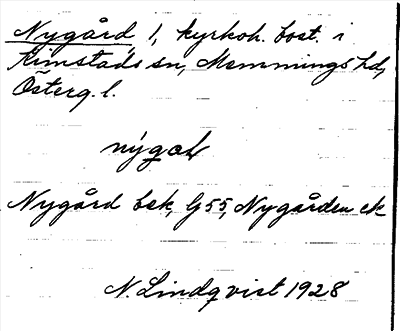 Nygård 1, kyrkoh. bost. i
Kimstads sn, Memmings hd,
Österg. l.
Nygård bsk, G55, Nygården ek
N. Lindqvist 1928